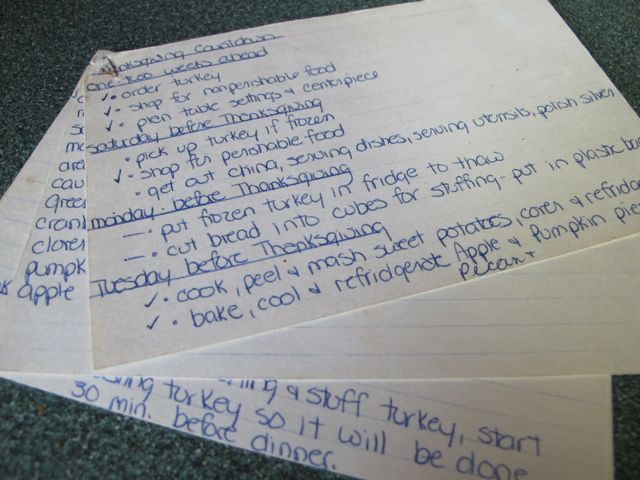 Thanksgiving Countdown
one-two weeks ahead
✓• order turkey
✓• shop for nonperishable food
✓• plan table settings & centerpiece
Saturday before Thanksgiving
• pick up turkey if frozen
✓• shop for perishable food
• get out china, serving dishes, serving utensils, polish silver
monday before Thanksgiving
—• put frozen turkey in fridge to thaw
—• cut bread into cubes for stuffing - put in plastic
Tuesday before Thanksgiving
✓• cook, peel & mash sweet potatoes, cover &
✓• bake, cool & refridgerate Apple & Pumpkin pies
Pecan +
green
cran
cloves
pumpk
apple
& stuff turkey, start
turkey so it will be done
30 min. before dinner.